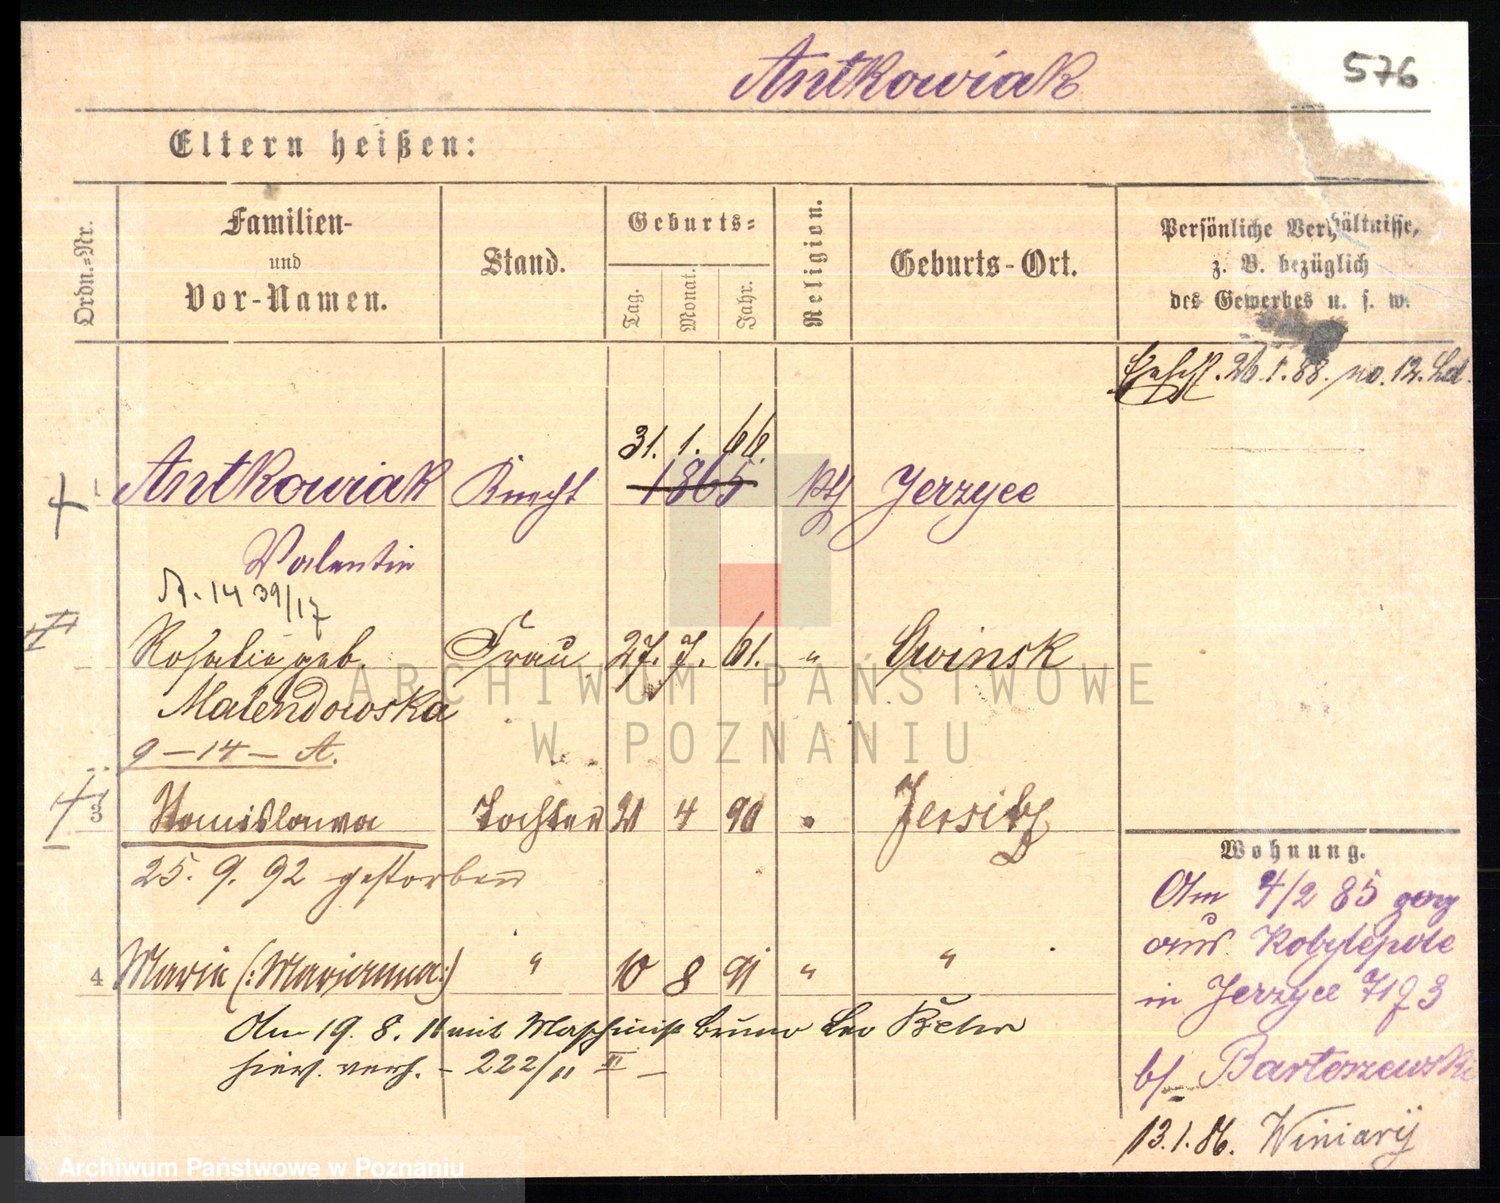 576
Antkowiak
Eltern heißen:
Ordn.=Nr.
Familien-
und
Vor-Namen.
Stand.
Geburts=
Tag.
Monat.
Jahr.
Religion.
Geburts-Ort.
Persönliche Verhältnisse,
z. B. bezüglich
des Gewerbes u. s. w.
26.1.88. no. 12.
31. 1. 66.
1 Antkowiak Knecht 1865 kth Jerzyce
Valentin
A. 1439/17
Rosalie geb. Frau 27. 7. 61. " Owinsk
Malendowska
9-14-A.
3 Stanislawa Tochter 21 4 90 " Jersitz
25. 9. 92 gestorben
4 Marie (: Marianna :) " 10 8 91 " "
Am 19. 8. 11 mit Maschinist Bruno Leo
hier. verh. - 222/11 III -
Wohnung.
Am 4/2 85 zerg
aus Kobylepole
in Jerzyce 71 3
b/ Bartoszewski
13.1.86. Winiary
ARCHIWUM PAŃSTWOWE
W POZNANIU
Archiwum Państwowe w Poznaniu